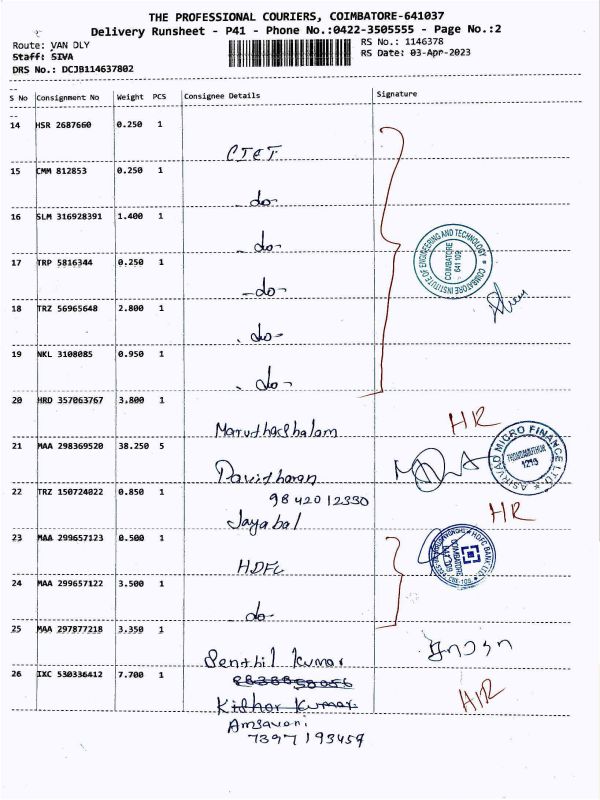 THE PROFESSIONAL COURIERS, COIMBATORE-641037
Delivery Runsheet - P41 - Phone No.:0422-3505555 - Page No.:2
Route: VAN DLY
RS No.: 1146378
Staff: SIVA
RS Date: 03-Apr-2023
DRS No.: DCJB114637802
S No Consignment No Weight PCS Consignee Details Signature
14 HSR 2687660 0.250 1
CIET
15 CMM 812853 0.250 1
- do-
16 SLM 316928391 1.400 1
- do-
17 TRP 5816344 0.250 1
- do-
18 TRZ 56965648 2.800 1
- do-
19 NKL 3108085 0.950 1
- do-
COIMBATORE INSTITUTE OF ENGINEERING AND TECHNOLOGY
COIMBATORE
641 109
20 HRD 357063767 3.800 1
Maruthachalam
HR
21 MAA 298369520 38.250 5
Pavidharan
9842012330
ASIRVAD MICRO FINANCE LTD.
1219
22 TRZ 150724022 0.850 1
Jayabal
HR
23 MAA 299657123 0.500 1
HDFC
HDFC BANK LTD
24 MAA 299657122 3.500 1
- do-
25 MAA 297877218 3.350 1
Senthil Kumar
26 IXC 530336412 7.700 1
Kishor Kumar
Amsaveni
7397193459
HR